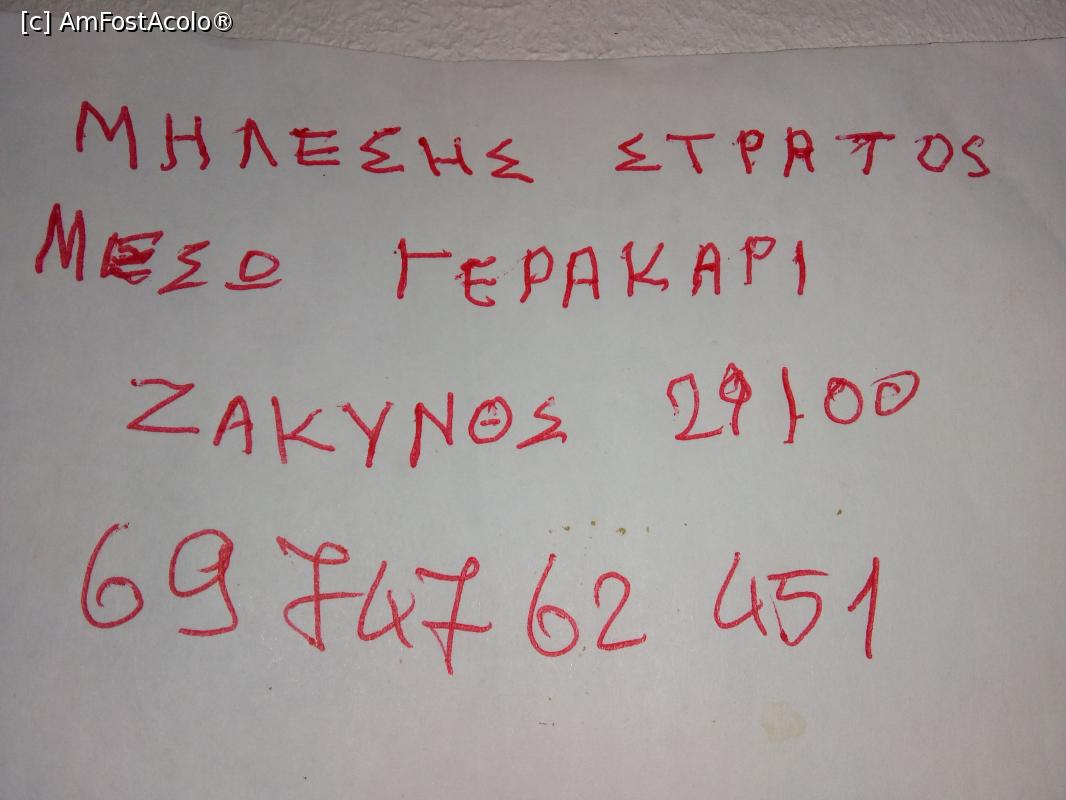 [c] AmFostAcolo®
ΜΗΛΕΣΗΣ ΣΤΡΑΤΟS
ΜΕΣΟ ΓΕΡΑΚΑΡΙ
ΖΑΚΥΝΘΟΣ 29100
69 747 62 451